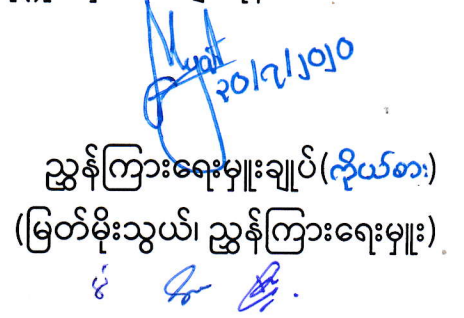 Myat
၃၀/၇/၂၀၂၀
ညွှန်ကြားရေးမှူးချုပ်(ကိုယ်စား)
(မြတ်မိုးသွယ်၊ ညွှန်ကြားရေးမှူး)